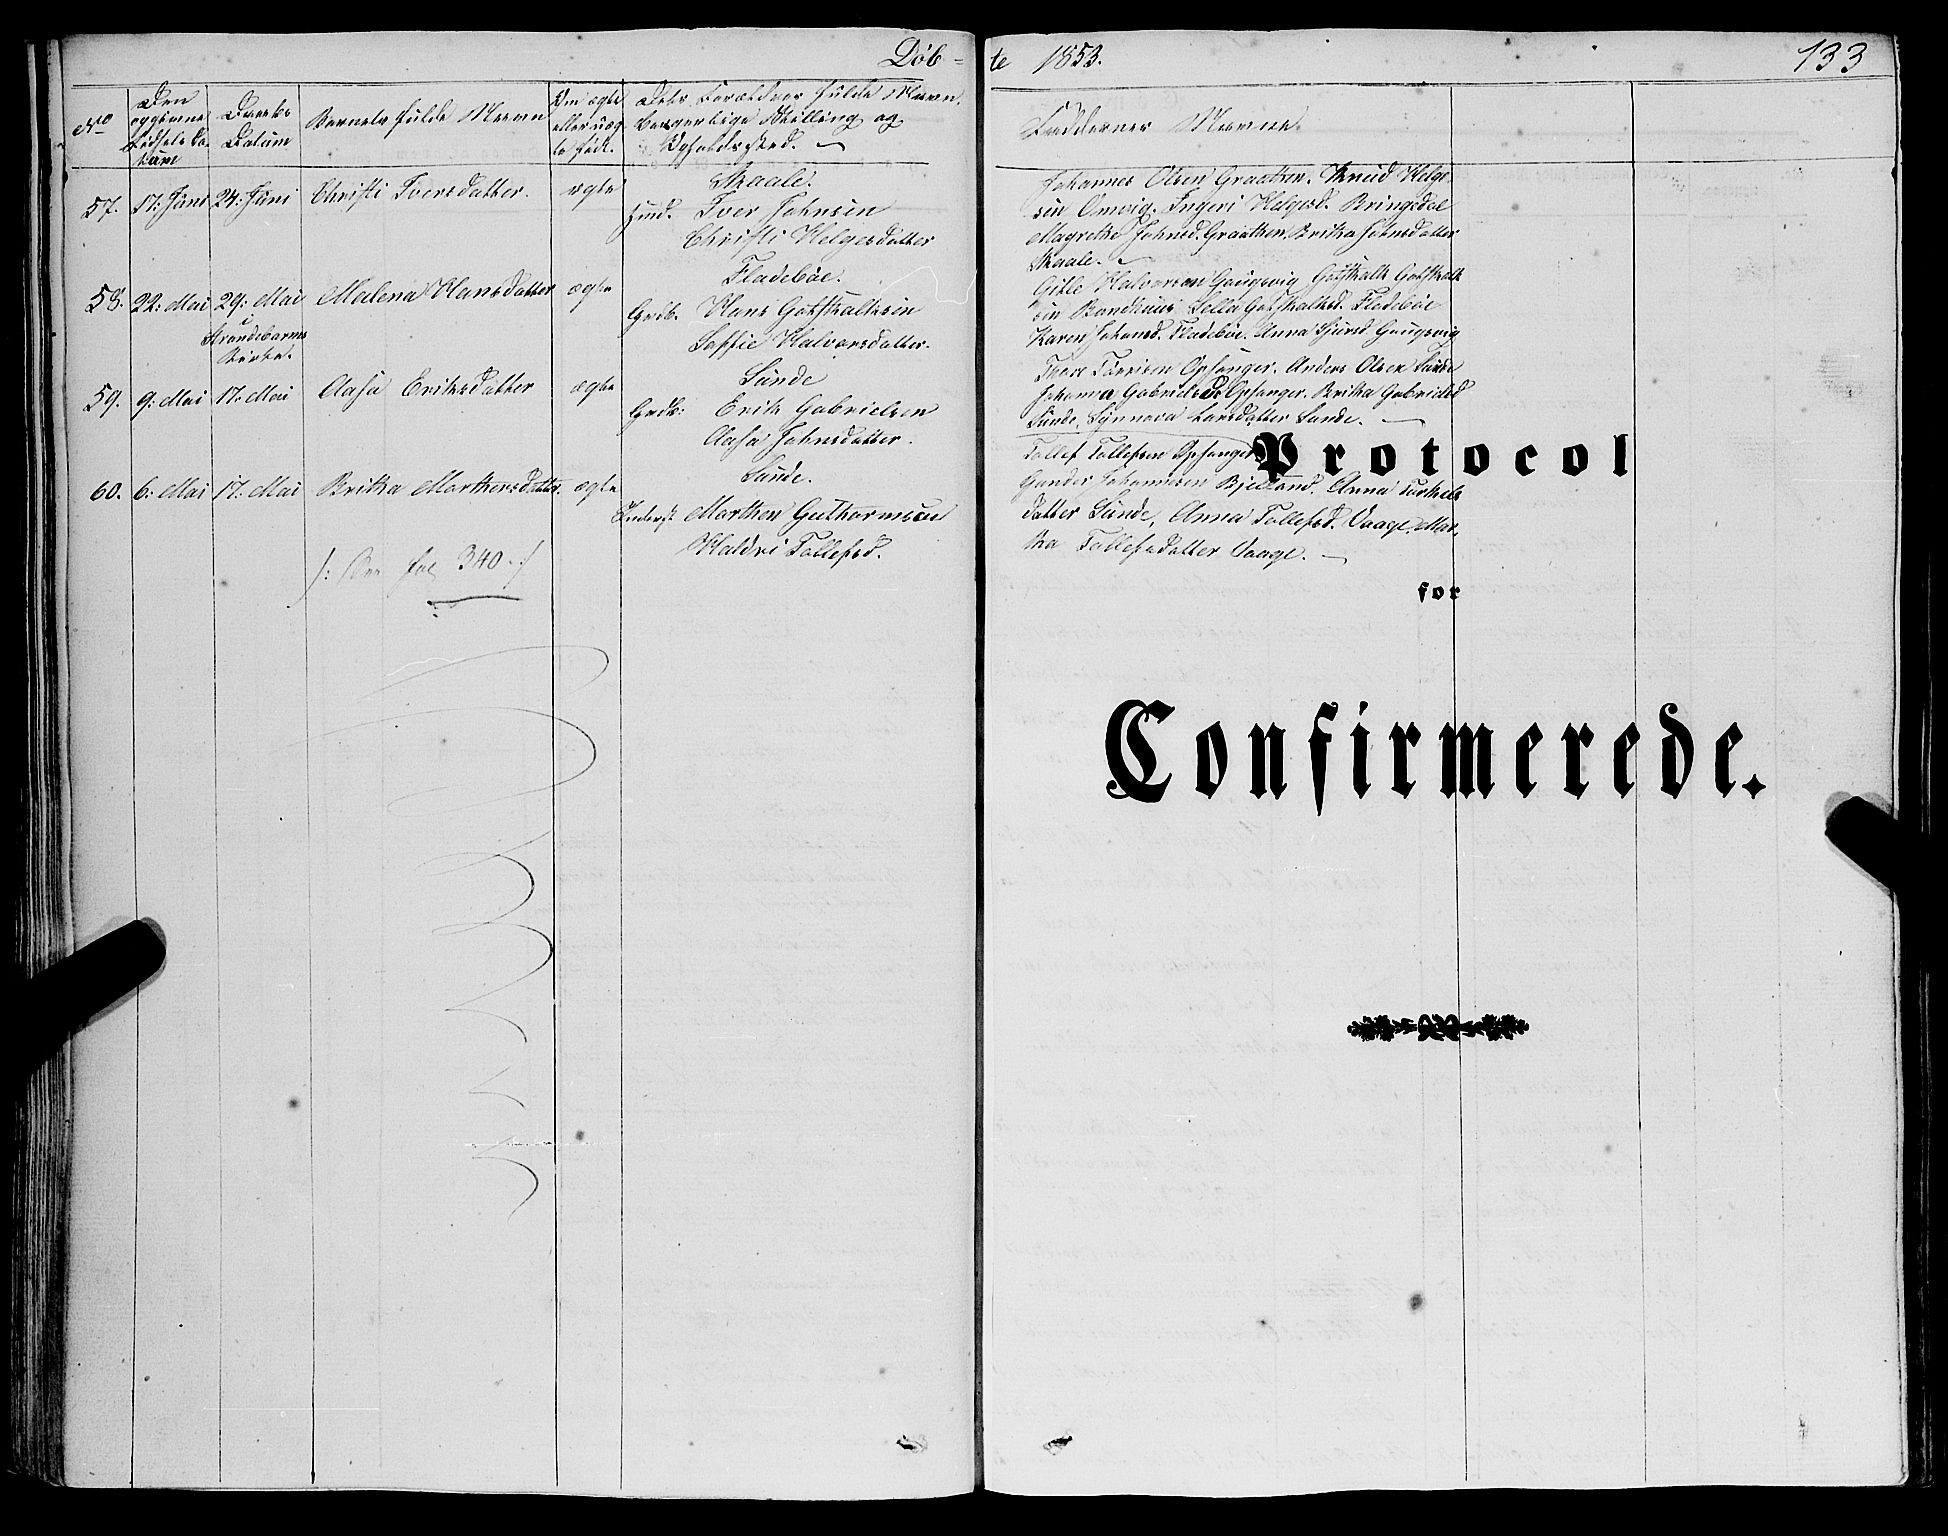 Døb-
te 1853.
133
No
Den opgivne Fødsels Datum
Daabs Datum
Barnets fulde Navn
Om ægte eller uægte født.
Dets Forældres fulde Navn, borgerlige Stilling og Opholdssted.
Faddernes Navne.
57. 17. Juni 24. Juni Christi Iversdatter. ægte
Skaale.
Iver Johnsen
Christi Helgesdatter
Johannes Olsen Graathen. Knud Helge-
sen Omvig. Ingeri Helgesd. Bringedal
Magrethe Johnsd. Graathen. Britha Johnsdatter
Skaale.
58. 22. Mai 29. Mai Malena Hansdatter ægte
Strandebarms
Kirke.
Fladebøe.
Grdb. Hans Gotskalksen
Soffie Halvorsdatter.
Gitle Halvorsen Gougsvig Gotskalk Gotskalk-
sen Bondhuus Sella Gotskalksd. Fladebøe
Karen Johansd. Fladebøe. Anna Sjursd. Gougsvig
59. 9. Mai 17. Mai Aasa Eriksdatter ægte
Sunde
Grdb. Erik Gabrielsen
Aasa Johnsdatter.
Opsanger. Anders Olsen Sunde
Johanna Gabrielsd. Opsanger. Britha Gabrielsd
Sunde, Synneva Larsdatter Sunde.
60. 6. Mai 17. Mai Britha Marthensdatter ægte
Sunde.
Inderst Marthen Guthormsen
Haldri Tollefsd.
Tollef Tollefsen Opsanger
Johannesen Bjelland. Anna Torkels-
datter Sunde, Anna Tollefsd. Vaage, Mar-
tha Tollefsdatter Vaage.
/: See fol 340. :/
Protocol
for
Confirmerede.